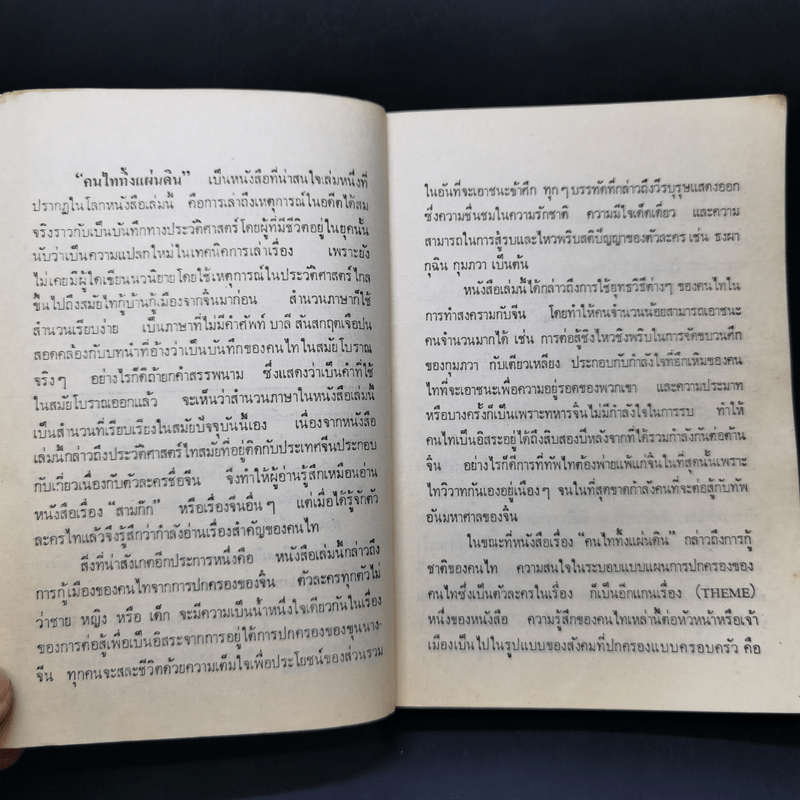 “คนไททิ้งแผ่นดิน” เป็นหนังสือที่น่าสนใจเล่มหนึ่งที่
ปรากฏในโลกหนังสือเล่มนี้ คือการเล่าถึงเหตุการณ์ในอดีตได้สม
จริงราวกับเป็นบันทึกทางประวัติศาสตร์โดยผู้ที่มีชีวิตอยู่ในยุคนั้น
นับว่าเป็นความแปลกใหม่ในเทคนิคการเล่าเรื่อง เพราะยัง
ไม่เคยมีผู้ใดเขียนนวนิยายโดยใช้เหตุการณ์ในประวัติศาสตร์ไกล
ขึ้นไปถึงสมัยไทกู้บ้านกู้เมืองจากจีนมาก่อน สำนวนภาษาก็ใช้
สำนวนเรียบง่าย เป็นภาษาที่ไม่มีคำศัพท์ บาลี สันสกฤตเจือปน
สอดคล้องกับบทนำที่อ้างว่าเป็นบันทึกของคนไทในสมัยโบราณ
จริงๆ อย่างไรก็ดีถ้ายกคำสรรพนาม ซึ่งแสดงว่าเป็นคำที่ใช้
ในสมัยโบราณออกแล้ว จะเห็นว่าสำนวนภาษาในหนังสือเล่มนี้
เป็นสำนวนที่เรียบเรียงในสมัยปัจจุบันนี้เอง เนื่องจากหนังสือ
เล่มนี้กล่าวถึงประวัติศาสตร์ไทสมัยที่อยู่ติดกับประเทศจีนประกอบ
กับเกี่ยวเนื่องกับตัวละครชื่อจีน จึงทำให้ผู้อ่านรู้สึกเหมือนอ่าน
หนังสือเรื่อง “สามก๊ก” หรือเรื่องจีนอื่นๆ แต่เมื่อได้รู้จักตัว
ละครไทแล้วจึงรู้สึกว่ากำลังอ่านเรื่องสำคัญของคนไท
สิ่งที่น่าสังเกตอีกประการหนึ่งคือ หนังสือเล่มนี้กล่าวถึง
การกู้เมืองของคนไทจากการปกครองของจีน ตัวละครทุกตัวไม่
ว่าชาย หญิง หรือ เด็ก จะมีความเป็นน้ำหนึ่งใจเดียวกันในเรื่อง
ของการต่อสู้เพื่อเป็นอิสระจากการอยู่ใต้การปกครองของขุนนาง
จีน ทุกคนจะสละชีวิตด้วยความเต็มใจเพื่อประโยชน์ของส่วนรวม
ในอันที่จะเอาชนะข้าศึก ทุกๆ บรรทัดที่กล่าวถึงวีรบุรุษแสดงออก
ซึ่งความชื่นชมในความรักชาติ ความมีใจเด็ดเดี่ยว และความ
สามารถในการสู้รบและไหวพริบสติปัญญาของตัวละคร เช่น ธงผา
กุฉิน กุมภวา เป็นต้น
หนังสือเล่มนี้ได้กล่าวถึงการใช้ยุทธวิธีต่างๆ ของคนไทใน
การทำสงครามกับจีน โดยทำให้คนจำนวนน้อยสามารถเอาชนะ
คนจำนวนมากได้ เช่น การต่อสู้ชิงไหวชิงพริบในการจัดขบวนศึก
ของกุมภวา กับเตียวเหลียง ประกอบกับกำลังใจที่ฮึกเหิมของคน
ไทที่จะเอาชนะเพื่อความอยู่รอดของพวกเขา และความประมาท
หรือบางครั้งก็เป็นเพราะทหารจีนไม่มีกำลังใจในการรบ ทำให้
คนไทเป็นอิสระอยู่ได้ถึงสิบสองปีหลังจากที่ได้รวมกำลังกันต่อต้าน
จีน อย่างไรก็ดีการที่ทัพไทต้องพ่ายแพ้แก่จีนในที่สุดนั้นเพราะ
ไทวิวาทกันเองอยู่เนืองๆ จนในที่สุดขาดกำลังคนที่จะต่อสู้กับทัพ
อันมหาศาลของจีน
ในขณะที่หนังสือเรื่อง “คนไททิ้งแผ่นดิน” กล่าวถึงการกู้
ชาติของคนไท ความสนใจในระบอบแบบแผนการปกครองของ
คนไทซึ่งเป็นตัวละครในเรื่อง ก็เป็นอีกแกนเรื่อง (THEME)
หนึ่งของหนังสือ ความรู้สึกของคนไทเหล่านี้ต่อหัวหน้าหรือเจ้า
เมืองเป็นไปในรูปแบบของสังคมที่ปกครองแบบครอบครัว คือ